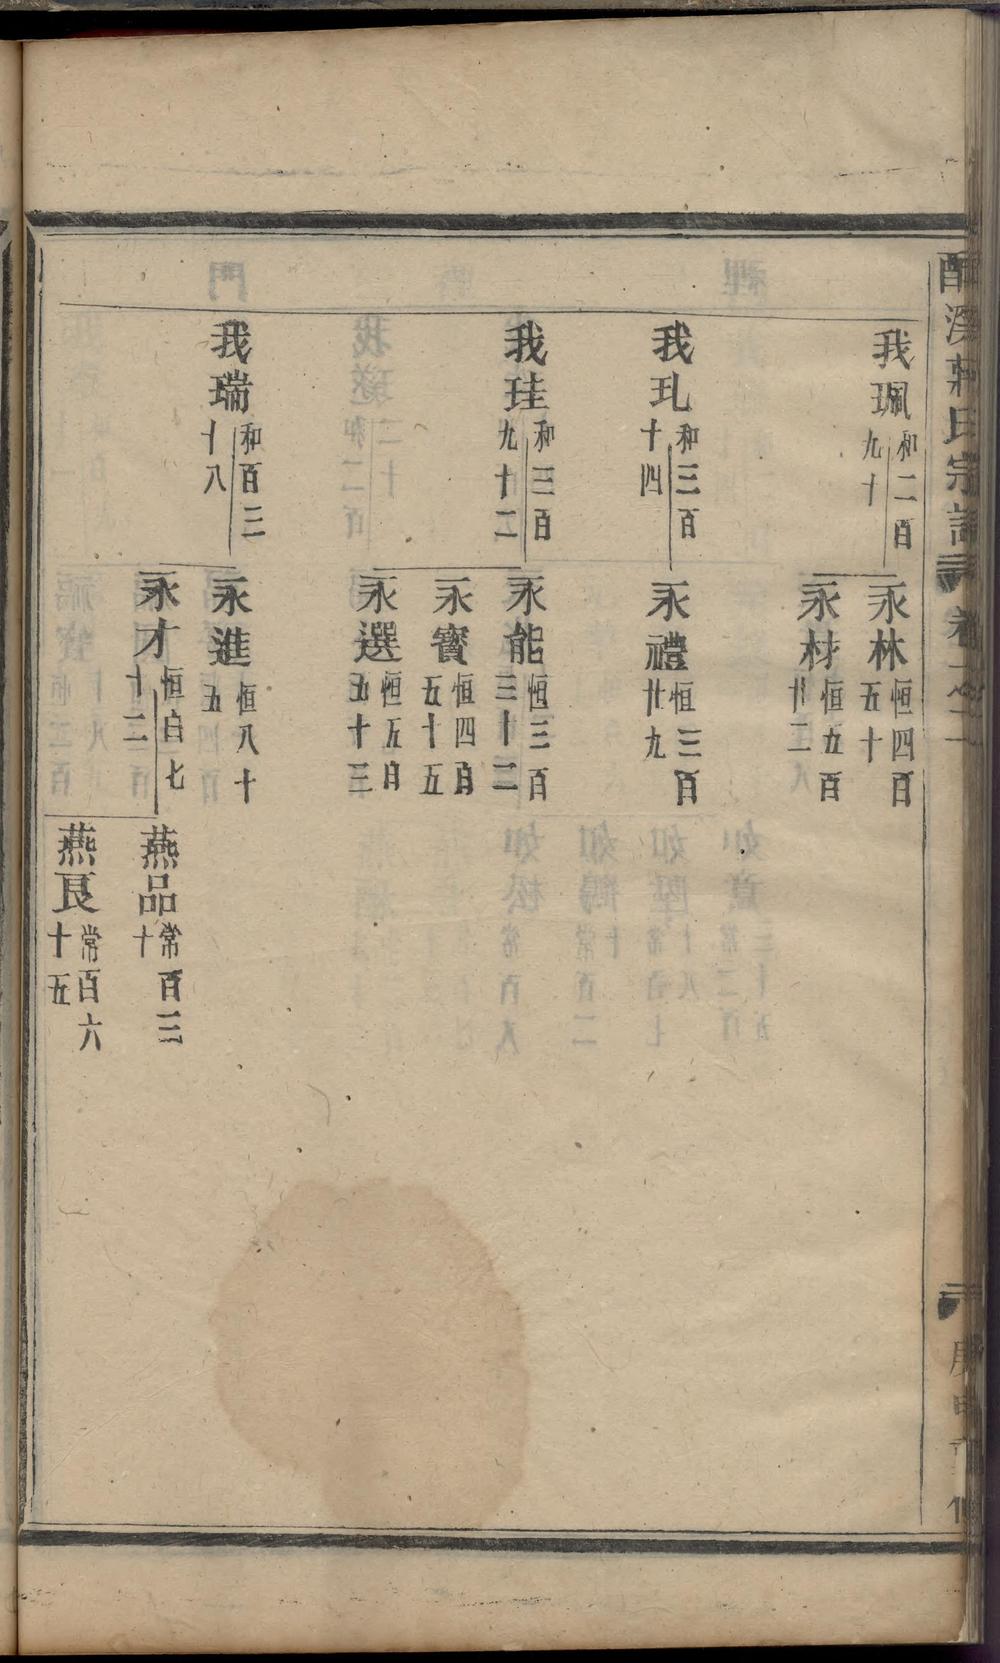 氏宗譜
卷
我珮 和二百九十
我玌 和三百十四
我珪 和三百九十二
我瑞 和百三十八
永林 恒四百五十
永材 恒五百廿二
永禮 恒三百廿九
永能 恒三百三十二
永賓 恒四百五十五
永選 恒五百五十三
永進 恒八十五
永才 恒百七十二
燕品 常百三十
燕良 常百六十五